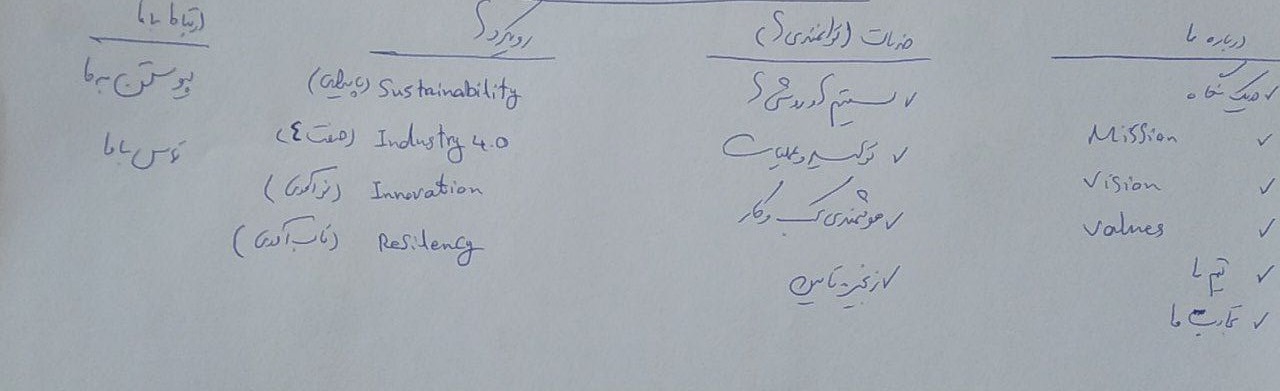 درباره ما
✓ در یک نگاه
✓ Mission
✓ Vision
✓ Values
✓ تیم ما
✓ تجارب ما
خدمات (توانمندی ها)
✓ سیستم ها و روش ها
✓ تولید و عملیات
✓ هوشمندی کسب و کار
✓ زنجیره تامین
رویکردها
Sustainability (پایداری)
Industry 4.0 (صنعت ٤)
Innovation (نوآوری)
Resilency (تاب آوری)
ارتباط با ما
پیوستن به ما
تماس با ما